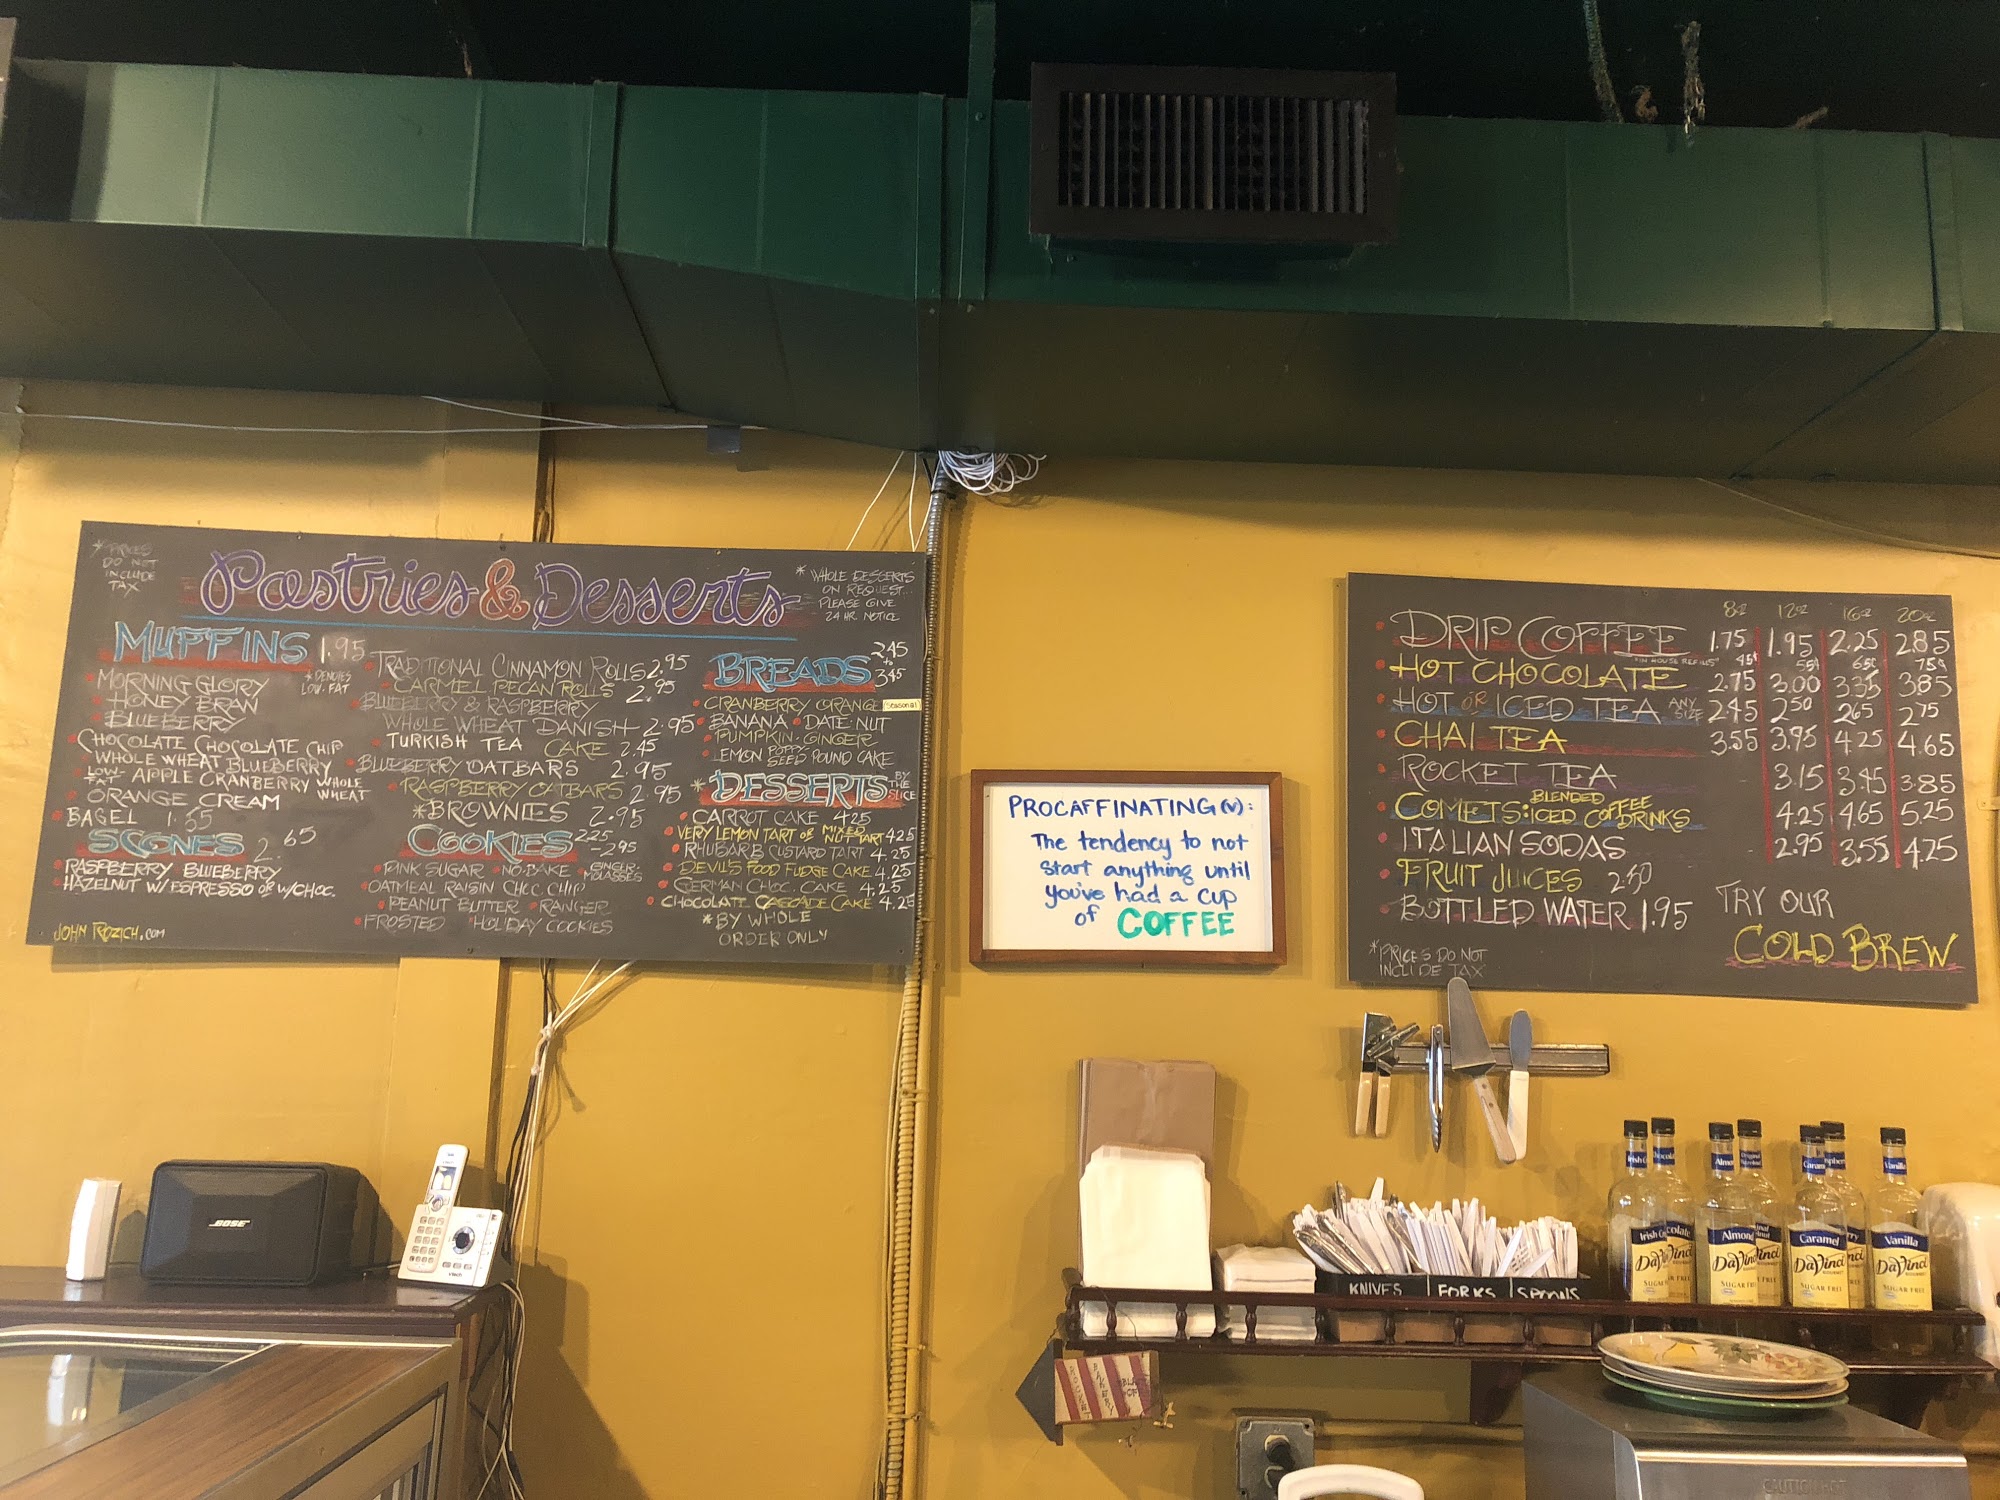 * PRICES
DO NOT
INCLUDE
TAX
Pastries & Desserts
* WHOLE DESSERTS
ON REQUEST...
PLEASE GIVE
24 HR NOTICE
MUFFINS 1.95
* DENOTES
LOW-FAT
MORNING GLORY
* HONEY BRAN
BLUEBERRY
CHOCOLATE CHOCOLATE CHIP
WHOLE WHEAT BLUEBERRY
LOW-FAT APPLE CRANBERRY WHOLE WHEAT
ORANGE CREAM
BAGEL 1.55
SCONES 2.65
RASPBERRY BLUEBERRY
HAZELNUT W/ESPRESSO OR W/CHOC.
JOHN ROZICH.COM
TRADITIONAL CINNAMON ROLLS 2.95
CARMEL PECAN ROLLS 2.95
BLUEBERRY & RASPBERRY
WHOLE WHEAT DANISH 2.95
TURKISH TEA CAKE 2.45
BLUEBERRY OATBARS 2.95
RASPBERRY OATBARS 2.95
* BROWNIES 2.95
COOKIES 2.25 - 2.95
PINK SUGAR NO-BAKE GINGER-MOLASSES
OATMEAL RAISIN CHOC CHIP
PEANUT BUTTER RANGER
FROSTED HOLIDAY COOKIES
BREADS 2.45 to 3.45
CRANBERRY ORANGE Seasonal
BANANA DATE-NUT
PUMPKIN-GINGER
LEMON POPPY SEED POUND CAKE
* DESSERTS BY THE SLICE
CARROT CAKE 4.25
VERY LEMON TART OR MIXED NUT TART 4.25
RHUBARB CUSTARD TART 4.25
DEVIL'S FOOD FUDGE CAKE 4.25
GERMAN CHOC. CAKE 4.25
CHOCOLATE CASCADE CAKE 4.25
* BY WHOLE
ORDER ONLY
PROCAFFINATING (v):
The tendency to not
start anything until
you've had a cup
of COFFEE
8oz 12oz 16oz 20oz
DRIP COFFEE 1.75 1.95 2.25 2.85
"IN HOUSE REFILLS" 45¢ 55¢ 65¢ 75¢
HOT CHOCOLATE 2.75 3.00 3.35 3.85
HOT OR ICED TEA ANY SIZE 2.45 2.50 2.65 2.75
CHAI TEA 3.55 3.95 4.25 4.65
ROCKET TEA 3.15 3.45 3.85
COMETS: BLENDED ICED COFFEE DRINKS 4.25 4.65 5.25
ITALIAN SODAS 2.95 3.55 4.25
FRUIT JUICES 2.50
BOTTLED WATER 1.95
TRY OUR
COLD BREW
* PRICES DO NOT
INCLUDE TAX
BOSE
vtech
KNIVES FORKS SPOONS
Almond
Caramel
Vanilla
DaVinci DaVinci DaVinci DaVinci
SUGAR FREE SUGAR FREE SUGAR FREE
CAUTION HOT